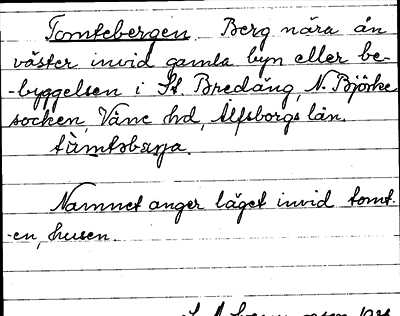 Tomtebergen. Berg nära ån
väster invid gamla byn eller be-
-byggelsen i St. Bredäng, N. Björke
socken, Väne hd, Älfsborgs län.
Namnet anger läget invid tomt-
-en, husen.